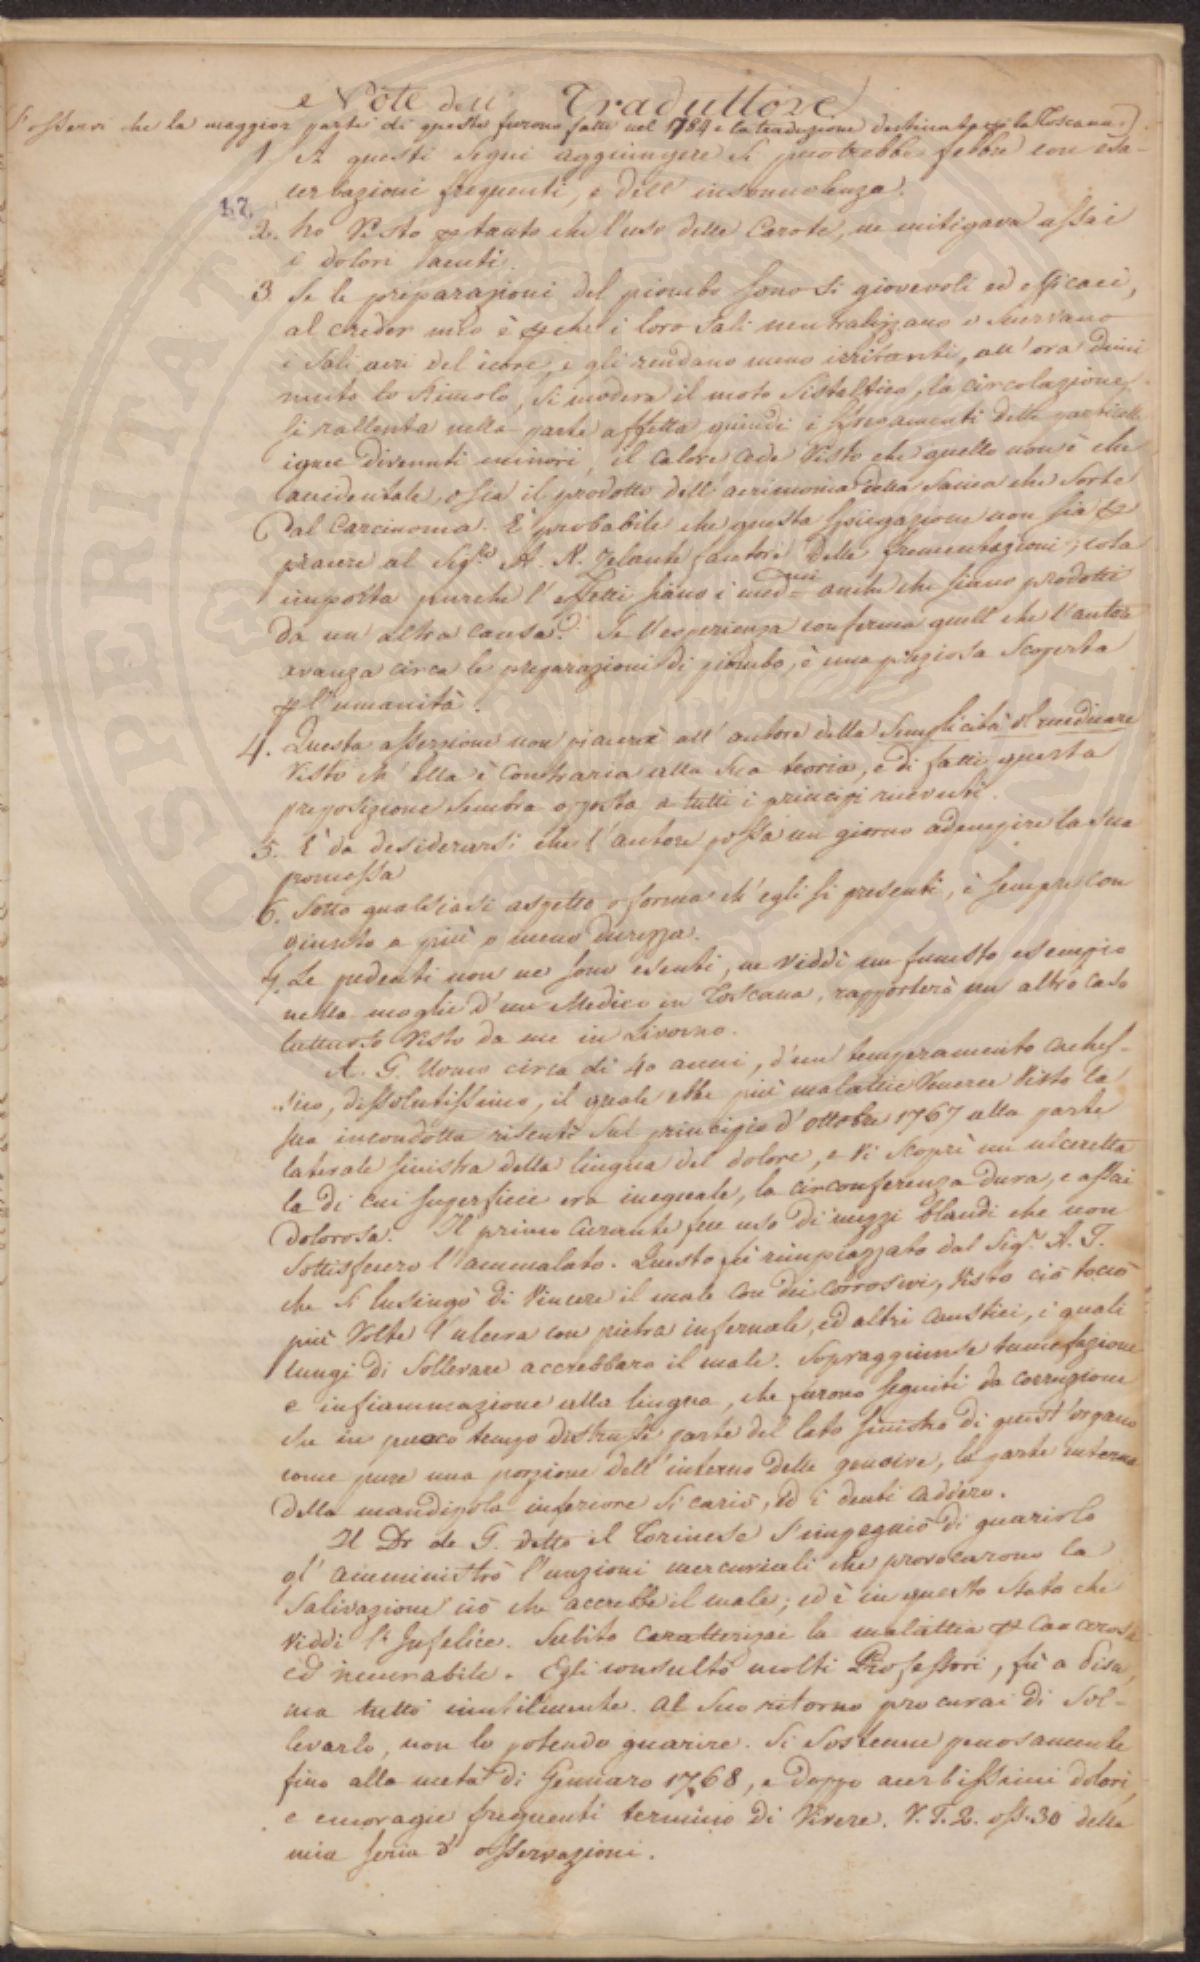 Note dell' Traduttore
(s'osservi che la maggior parte di queste furono fatte nel 1784 e la traduzione destinata p la Toscana)
1 A questi segni aggiungere si potrebbe febbre con esa-
cerbazioni frequenti, e dell' insonnolenza.
17.
2. ho Visto p tanto che l'uso delle Carote, ne mitigava assai
i dolori acuti.
3 Se le preparazioni del piombo sono si giovevoli ed efficaci,
al creder mio è p che i loro Sali neutralizzano o Snervano
i Sali acri del icore, e gli rendano meno irritanti, all' ora dimi
nuito lo Stimolo, Si modera il moto Sistaltico, la circolazione
si rallenta nella parte affetta, quindi i sfregamenti delle particelle
ignee divenuti minori, il Calore cede Visto che quello non è che
accidentale, o sia il prodotto dell' acrimonia della Sanea che Sorte
dal Carcinoma. E' probabile che questa spiegazione non sia p
piacere al Sig.re A. R. Zelante fautore delle fermentazioni; cola
importa purche l' effetti siano i med.mi anche che siano prodotti
da un' altra causa. Se l'esperienza conferma quell che l'autore
avanza circa le preparazioni di piombo, è una preziosa Scoperta
p l'umanità.
4. Questa assersione non piacerà all' autore della Semplicità di medicare
Visto ch' Ella è Contraria alla Sua teoria, e di fatti questa
preposizione Sembra opposta a tutti i principi ricevuti.
5. È da desiderarsi che l'autore possa un giorno adempire la sua
promessa
6. Sotto qualsiasi aspetto o forma ch' egli si presenti, è sempre con
giunto a più o meno durezza.
7. Le pudenti non ne sono esenti, ne viddi un funesto esempio
nella moglie d'un Medico in Toscana, rapporterò un altro caso
Visto da me in Livorno.
A. G. Uomo circa di 40 anni, d'un temperamento cachef-
tico, dissolutissimo, il quale ebbe più malattie Veneree Visto la
sua incondotta risentì Sul principio d'ottobre 1767 alla parte
laterale sinistra della lingua del dolore, e Vi Scoprì un ulceretta
la di cui superficie era ineguale, la circonferenza dura, e assai
dolorosa. Il primo Curante fece uso di mezzi blandi che non
Sottisfecero l'ammalato. Questo fù rimpiazzato dal Sig.r A. T.
che Si lusingò di Vincere il male con dei corrosivi, Visto ciò toccò
più Volte l'ulcera con pietra infernale, ed altri Caustici, i quali
lungi di Sollevare accrebbaro il male. Sopraggiunse tumefazione
e infiammazione alla lingua, che furono seguiti da corruzione
che in puoco tempo distrusse parte del lato sinistro di quest'organo
come pure una porzione dell' interno delle gencive, la parte interna
della mandipola inferiore Si cariò, ed i denti cadero.
Il Dr de G. detto il Torinese s'impegniò di guarirlo
gl' amministrò l'unzioni mercuriali che provocarono la
Salivazione ciò che accrebbe il male; ed è in questo Stato che
Viddi l'Infelice. Subito caratterizai la malattia p Cancerosa
ed incurabile. Egli consultò molti Professori, fù a Pisa,
ma tutto inutilmente. al Suo ritorno procurai di Sol-
levarlo, non lo potendo guarire. Si Sostenne penosamente
fino alla metà di Gennaro 1768, e doppo acerbissimi dolori,
e emoragie frequenti terminò di Vivere. V. T. 2. oss. 30 della
mia seria d' osservazioni.